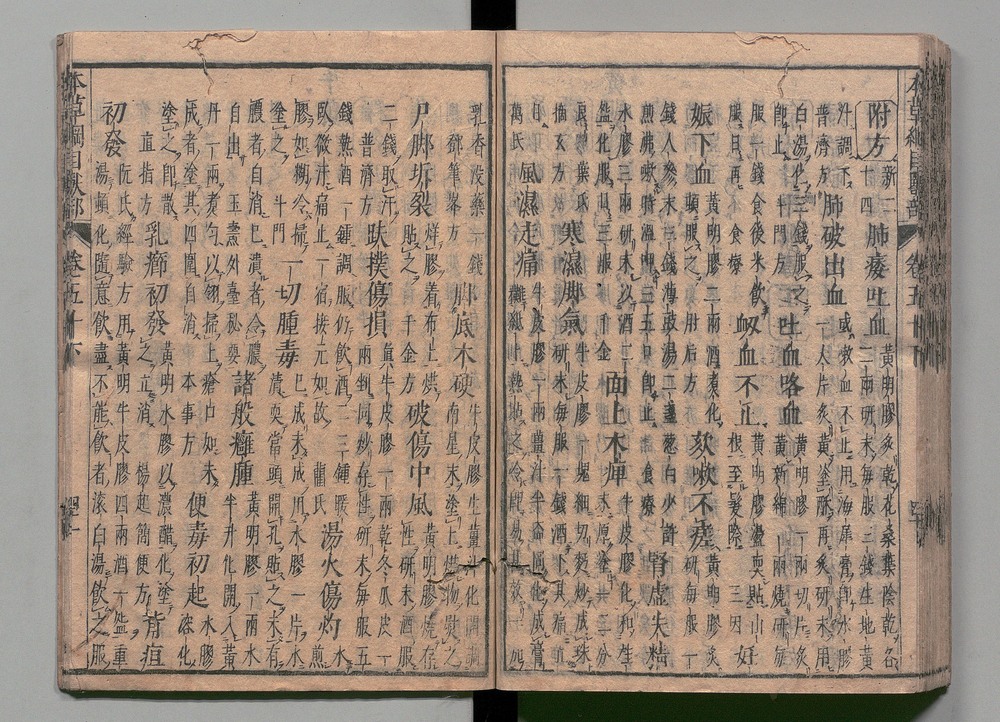 附方 新二十四 肺痿吐血 黃明膠炙乾花桑葉陰乾各二兩研末每服三錢生地黃
汁調下 普濟方 肺破出血 或嗽血不止用海犀膏即水膠一大片炙黃塗酥再炙研末用
白湯化三錢服之即止 斗門方 吐血咯血 黃明膠一兩切片炙黃新綿一兩燒研每
服一錢食後米飲服日再 食療 衂血不止 黃明膠盪耎貼山根至髮際 三因 妊
娠下血 黃明膠二兩酒煮化頓服之 肘后方 欬嗽不瘥 黃明膠炙研每服一
錢人參末二錢薄豉湯二盞葱白少許煎沸嗽時溫呷三五口即止 食療 腎虛失精
水膠三兩研末以酒二盌化服日三服 千金 面上木痺 牛皮膠化和
寒濕脚氣 牛皮膠一塊細切麪炒成珠研末每服一錢酒下其痛
風濕走痛 牛皮膠一兩薑汁半盃同化成膏攤紙上熱貼之冷即易其效 萬氏 一加
乳香沒藥一錢 鄧筆峯方 脚底木硬 牛皮膠生薑汁化開調南星末塗上烘物熨之
尸脚坼裂 烊膠着布上烘貼之 千金方 破傷中風 黃明膠燒存性研末酒服
二錢取汗 普濟方 跌撲傷損 眞牛皮膠一兩乾冬瓜皮一兩剉同炒存性研末每服五
錢熱酒一鍾調服仍飲酒二三鍾暖臥微汗痛止一宿接元如故 藺氏 湯火傷灼 水煎
膠如糊冷掃塗之 斗門 一切腫毒 已成未成用水膠一片水漬耎當頭開孔貼之未有
膿者自消已潰者令膿自出 王燾外臺秘要 諸般癰腫 黃明膠一兩水半升化開入黃
丹一兩煮勻以翎掃上瘡口如未成者塗其四圍自消 本事方 便毒初起 水膠溶化
塗之即散 直指方 乳癤初發 黃明水膠以濃醋化塗之立消 楊起簡便方 背疽
初發 阮氏經驗方用黃明牛皮膠四兩酒一盌重湯頓化隨意飲盡不能飲者滚白湯飲之服
本草綱目獸部 卷五十下